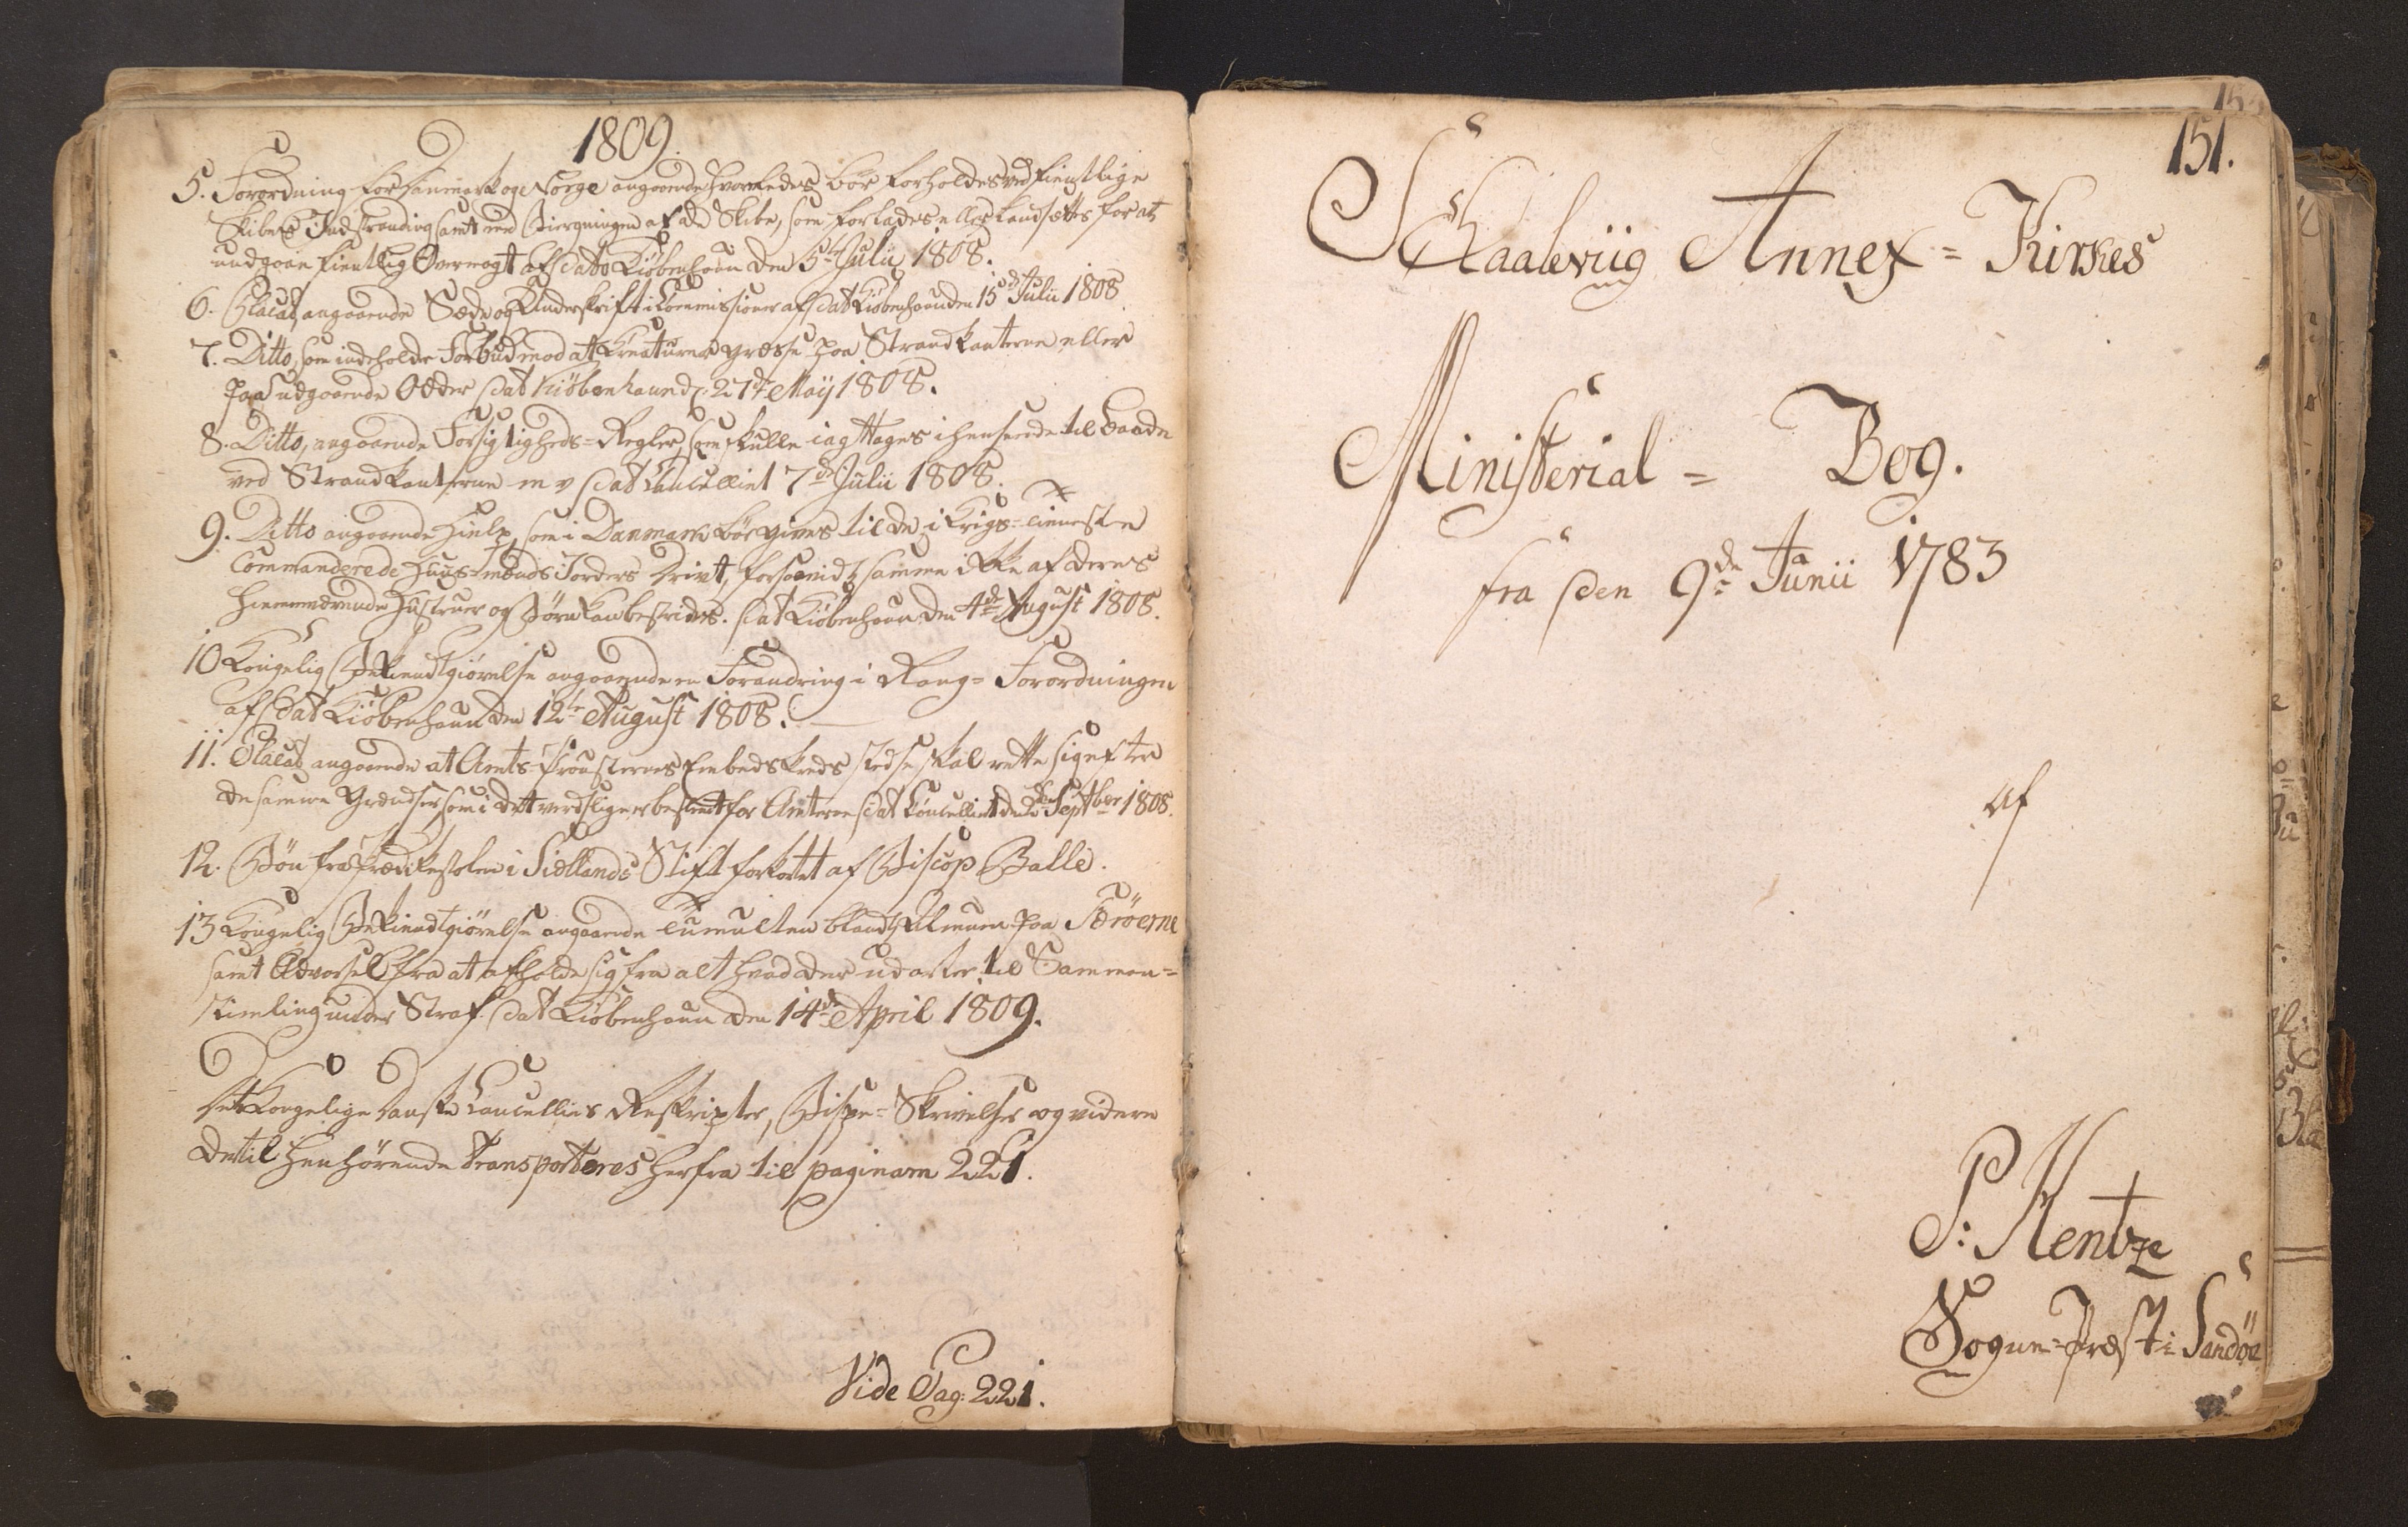 1809.
5. Forordning for Danmark og Norge angaaende hvorledes bör forholdes ved fientlige
Skibes Indstranding samt med Biergningen af de Skibe, som forlades eller landsættes for at
undgaae fientlig Overmagt af Dato Kiöbenhavn den 5te Julii 1808.
6. Placat, angaaende Sæde og Underskrift i Commissioner af Dat Kiöbenhavn den 15de Julii 1808
7. Ditto, som indeholde Forbud mod at Kreaturer græsse paa Strandkanterne eller
paa udgaaende Odder Dat Kiöbenhavn d. 27de Maÿ 1808.
8. Ditto, angaaende Forsigtigheds-Regler, som skulle iagttages i henseende til Baade
ved Strandkanterne m v Dat Cancelliet 7de Julii 1808.
9. Ditto angaaende Hielp, som i Danmark bör gives til de i Krigs-Tienesten
Commanderede Huus-mænds Jorders Drivt, forsaavidt samme ikke af deres
hiemmeværende Hustruer og Börn kan bestrides. Dat Kiöbenhavn den 4de August 1808.
10 Kongelig Bekiendtgiörelse angaaende en Forandring i Rang-Forordningen
af Dat Kiöbenhavn den 12te August 1808.
11. Placat angaaende at Amts-Prousternes Embedskreds stedse skal rette sig efter
de samme Grændser som i det verdslige er bestemt for Amterne Dat Cancelliet den 2de Septber 1808.
12. Bön fra Prædikestolen i Siellands Stift forkortet af Biscop Balle.
13 Kongelig Bekiendtgiörelse angaaende Tumulten blandt Almuen paa Færöerne
samt Advarsel fra at afholde sig fra alt hvad der udarter til Sammen-
stimling under Straf. Dat Kiöbenhavn den 14de April 1809.
Det Kongelige Danske Cancellies Reskripter, Bispe-Skrivelser og videre
dertil henhörende transporteres herfra til paginam 221.
Vide Pag: 221.
151.
Skaalevüg Annex-Kirkes
Ministerial- Bog.
fra den 9de Junii 1783
af
P: Hentze
Sogne-Præst i Sandöe